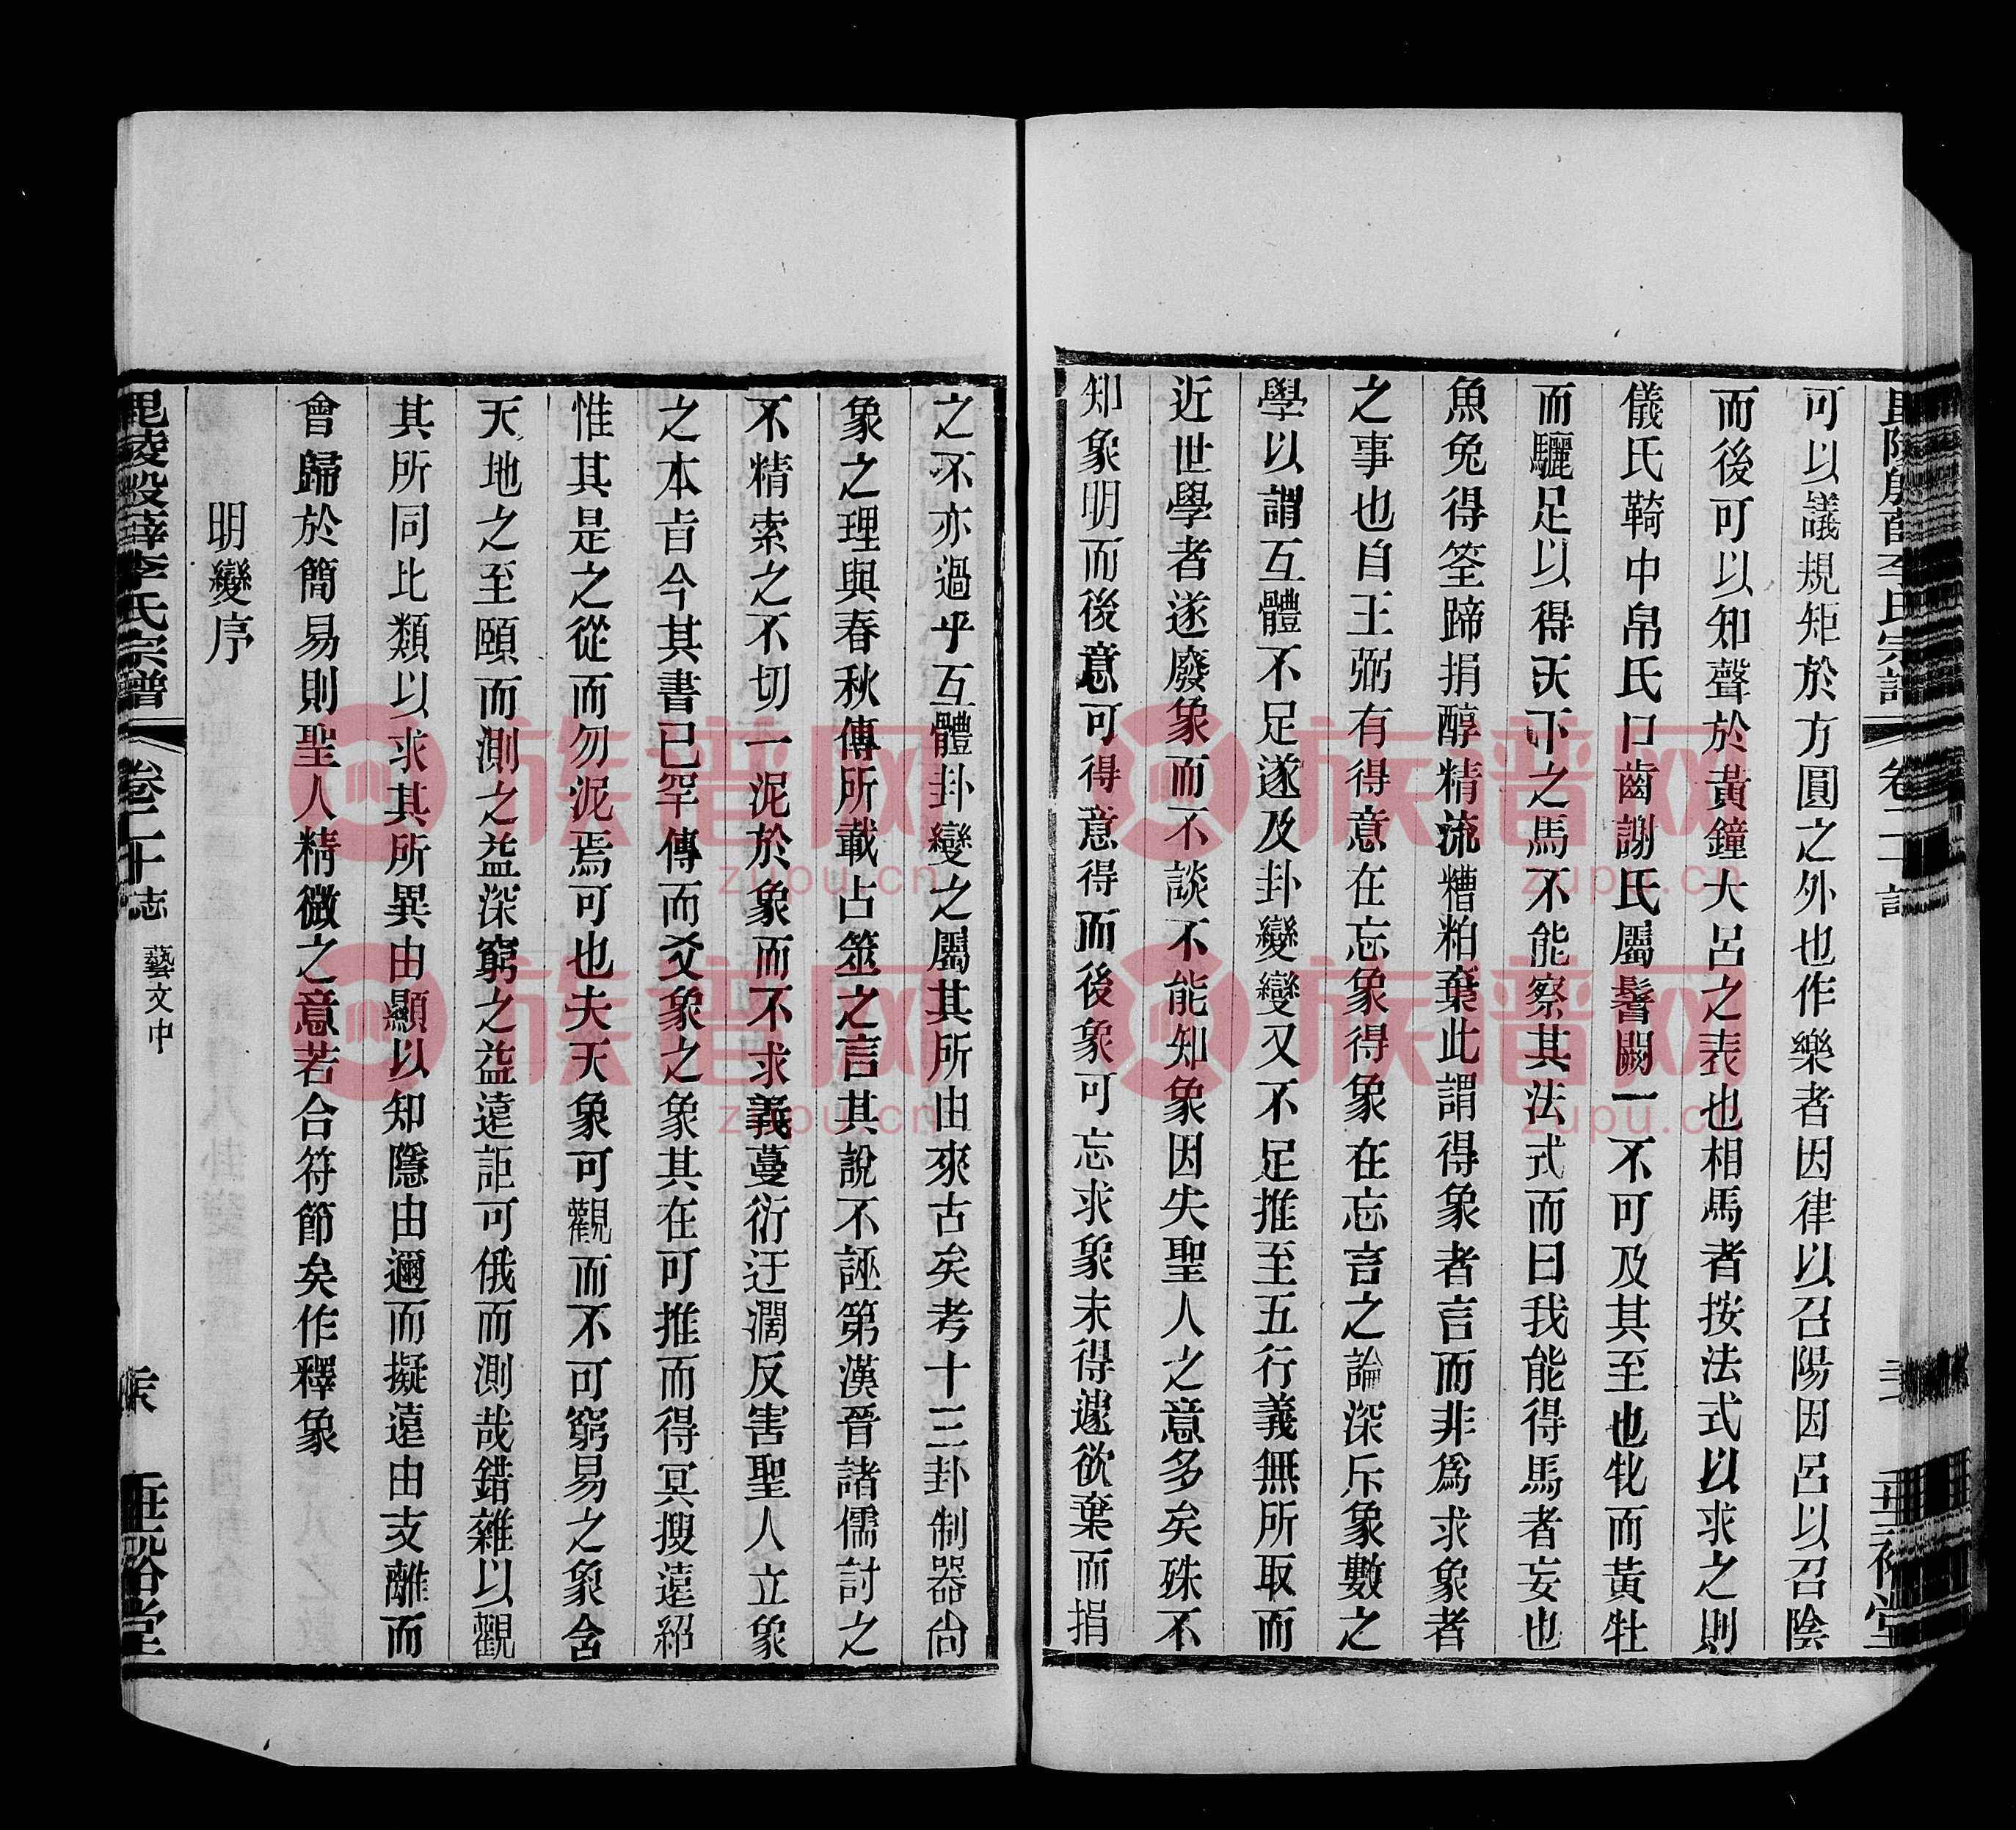 可以議規矩於方圓之外也作樂者因律以召陽因呂以召陰
而後可以知聲於黃鐘大呂之表也相馬者按法式以求之則
儀氏鞫中帛氏口齒謝氏屬鬐闕一不可及其至也牝而黃牡
而驪足以得天下之馬不能察其法式而曰我能得馬者妄也
魚兔得筌蹄捐醇精流糟粕棄此謂得象者言而非為求象者
之事也自王弼有得意在忘象得象在忘言之論深斥象數之
學以謂互體不足遂及卦變變又不足推至五行義無所取而
近世學者遂廢象而不談不能知象因失聖人之意多矣殊不
知象明而後意可得意得而後象可忘求象未得遽欲棄而捐
之不亦過乎互體卦變之屬其所由來古矣考十三卦制器尚
象之理與春秋傳所載占筮之言其說不誣第漢晉諸儒討之
不精索之不切一泥於象而不求義蔓衍迂濶反害聖人立象
之本旨今其書已罕傳而爻象之象其在可推而得冥搜遠紹
惟其是之從而勿泥焉可也夫天象可觀而不可窮易之象含
天地之至賾而測之益深窮之益遠詎可俄而測哉錯雜以觀
其所同比類以求其所異由顯以知隱由邇而擬遠由支離而
會歸於簡易則聖人精微之意若合符節矣作釋象
明變序
毗陵段薛李氏宗譜
卷二十志
藝文中
垂裕堂